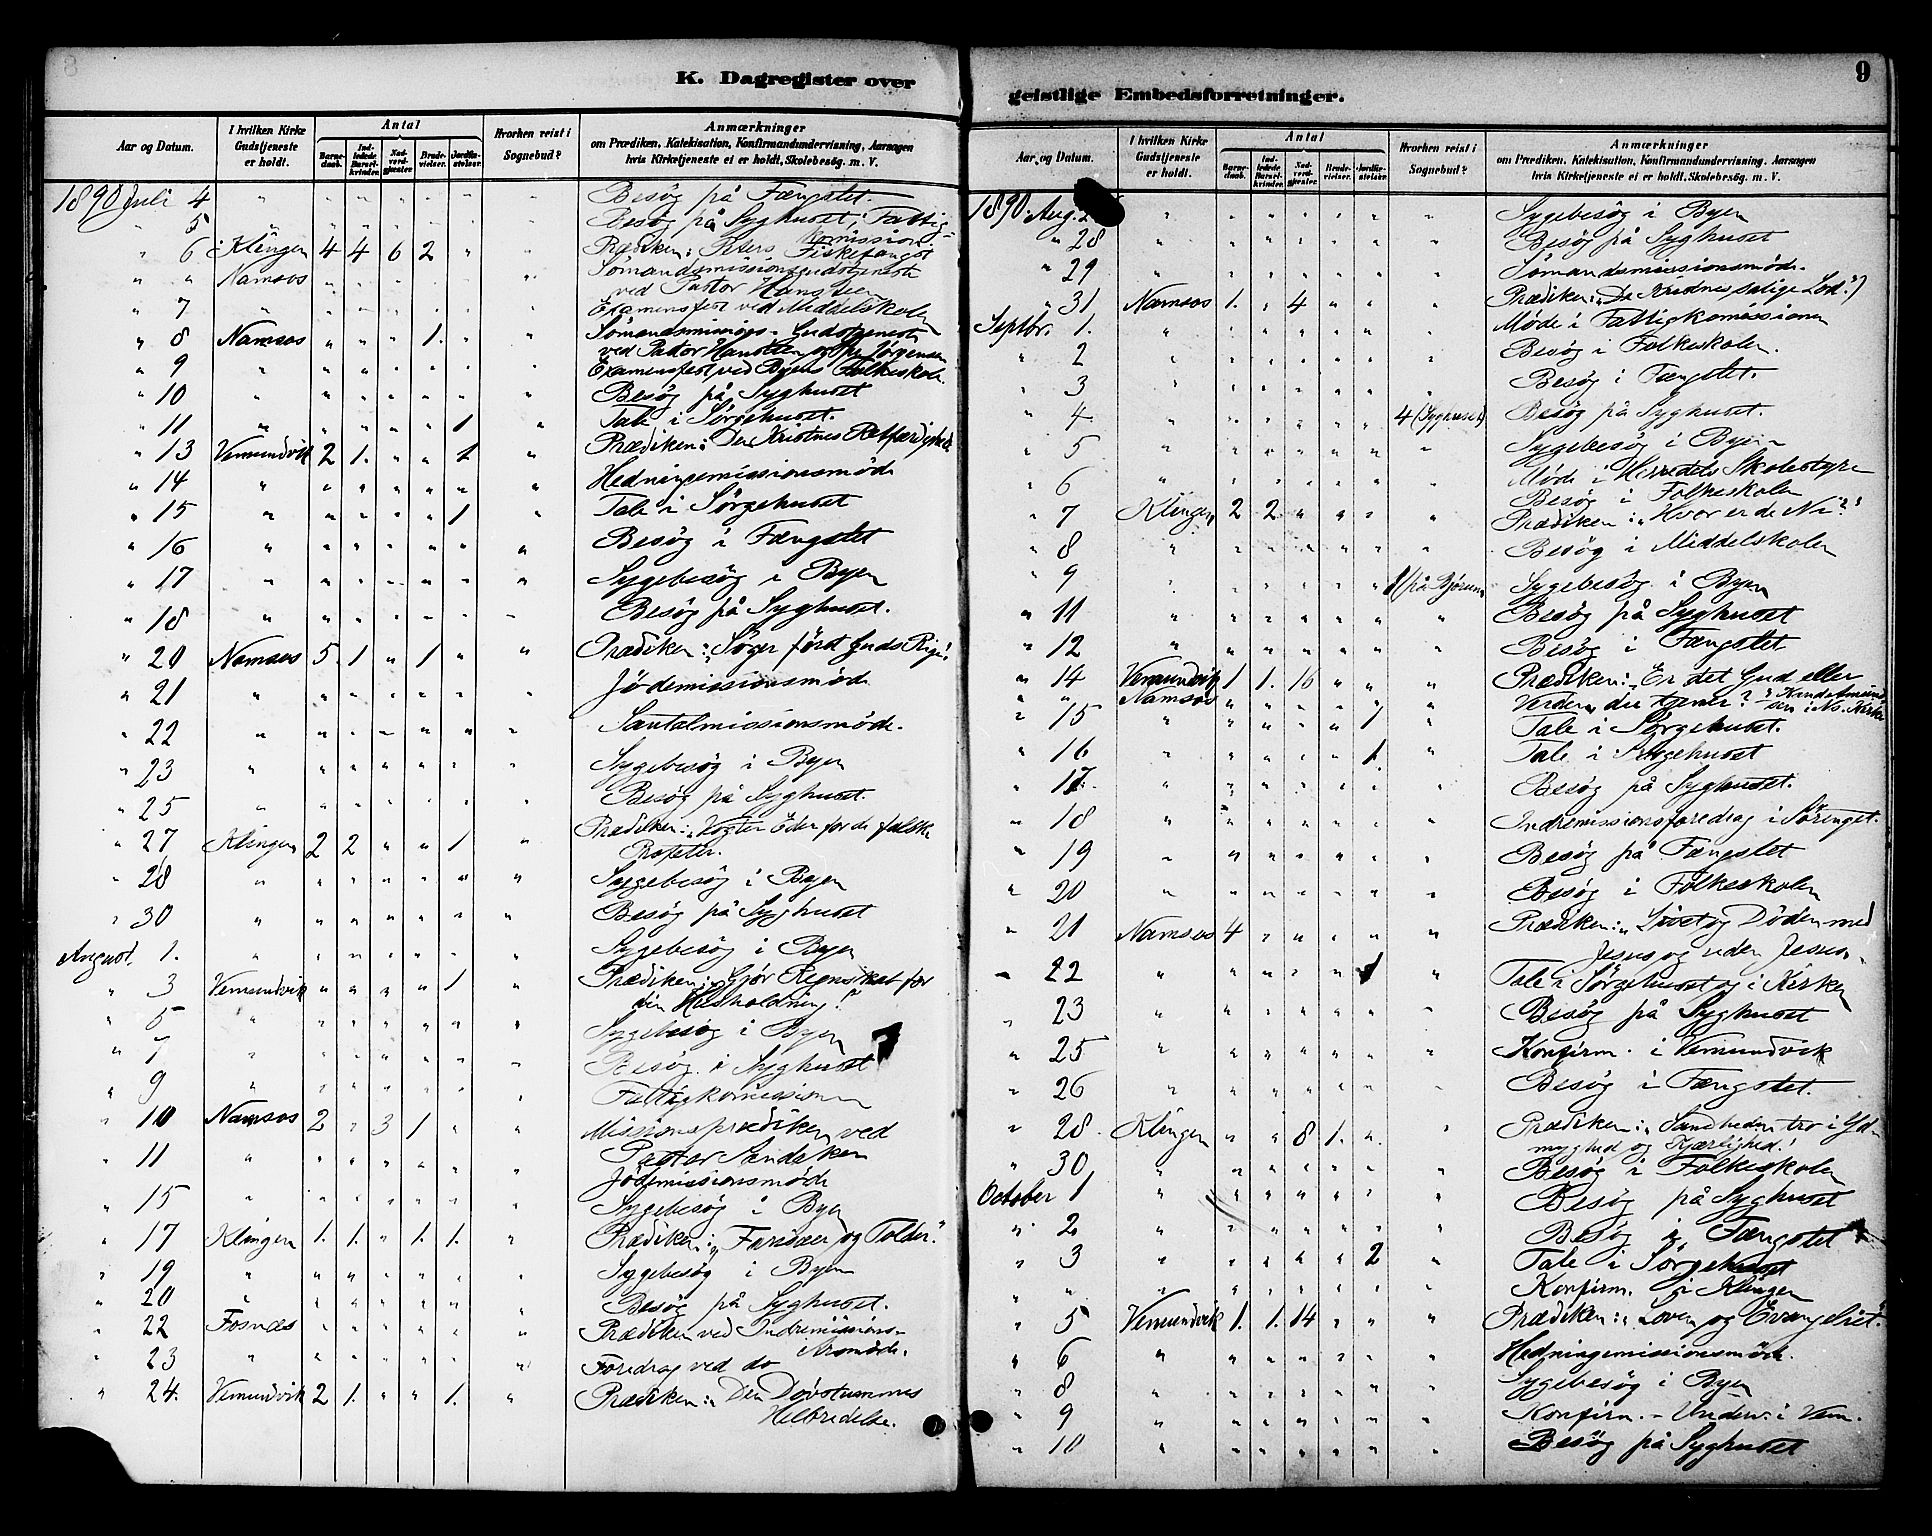 8
K. Dagregister over
Aar og Datum.
I hvilken Kirke Gudstjeneste er holdt.
Antal
Barnedaab.
Indledede Barselkvinder.
Nadverdgjester
Brudevielser.
Jordfæstelser.
Hvorhen reist i Sognebud?
Anmærkninger
om Prædiken, Katekisation, Konfirmandundervisning, Aarsagen
hvis Kirketjeneste ei er holdt, Skolebesøg. m. V.
1890 Juli 4 " " " " " " " Besög på Fængslet.
" 5 " " " " " " " Besög på Syghuset, i Fattig-
komission
" 6 Klingen 4 4 6 2 " " Prædiken: Peters Fiskefangst
" " Namsos " " " " " " Sömandsmissionsgudstjeneste
ved Pastor Hansteen
" 7 " " " " " " " Examensfest ved Middelskolen
" 8 Namsos " " " 1. " " Sömandsmissions-Gudstjeneste
ved Pastor Hansteen og Jörgensen
" 9 " " " " " " " Examensfest ved Byens Folkeskole.
" 10 " " " " " " " Besög på Syghuset
" 11 " " " " " 1 " Tale i Sørgehuset.
" 13 Vemundvik 2 1. " " 1 " Prædiken: De Kristnes Retfærdighed
" 14 " " " " " " " Hedningemissionsmöde
" 15 " " " " " 1 " Tale i Sørgehuset
" 16 " " " " " " " Besög i Fængslet
" 17 " " " " " " " Sygebesög i Byen
" 18 " " " " " " " Besög på Syghuset.
" 20 Namsos 5 1 " 1 " " Prædiken: "Søger först Guds Rige!"
" 21 " " " " " " " Jödemissionsmöde
" 22 " " " " " " " Santalmissionsmöde.
" 23 " " " " " " " Sygebesög i Byen
" 25 " " " " " " " Besög på Syghuset.
" 27 Klingen 2 2 " " 1 " Prædiken: "Vogter Eder for de falske
Profeter.
" 28 " " " " " " " Sygebesög i Byen
" 30 " " " " " " " Besög på Syghuset
August. 1. " " " " " " " Sygebesög i Byen
" 3 Vemundvik " " " " 1 " Prædiken: "Gjør Regnskab for
din Husholdning!"
" 5 " " " " " " " Sygebesög i Byen
" 7 " " " " " " " Besög i Syghuset
" 9 " " " " " " " Fattigkomissionen
" 10 Namsos 2 " 3 1 " " Missionsprædiken ved
Pastor Sandaker
" 11 " " " " " " " Jödemissionsmöde
" 15 " " " " " " " Sygebesög i Byen
" 17 Klingen 1. 1. " 1. 1. " Prædiken: "Farisæer og Tolder."
" 19 " " " " " " " Sygebesög i Byen
" 20 " " " " " " " Besög på Syghuset.
" 22 Fosnæs " " " " " " Prædiken ved Indremissions-
Årsmöde.
" 23 " " " " " " " Foredrag ved do
" 24. Vemundvik 2 1. " " 1. " Prædiken: "Den Døvstummes
Helbredelse.
9
geistlige Embedsforretninger.
Aar og Datum.
I hvilken Kirke Gudstjeneste er holdt.
Antal
Barnedaab.
Indledede Barselkvinder.
Nadverdgjester
Brudevielser.
Jordfæstelser.
Hvorhen reist i Sognebud?
Anmærkninger
om Prædiken, Katekisation, Konfirmandundervisning, Aarsagen
hvis Kirketjeneste ei er holdt, Skolebesøg. m. V.
1890. Aug. " " " " " " " Sygebesög i Byen
" 28 " " " " " " " Besög på Syghuset
" 29 " " " " " " " Sömandsmissionsmöde.
" 31 Namsos 1. " 4 " " " Prædiken: "De Kristnes salige Lod."
Septbr. 1. " " " " " " " Möde i Fattigkomissionen
" 2 " " " " " " " Besög i Folkeskolen.
" 3 " " " " " " " Besög i Fængslet.
" 4 " " " " " " 4 (Syghuset) Besög på Syghuset.
" 5 " " " " " " " Sygebesög i Byen
" 6 " " " " " " " Möde i Herredets Skolestyre
Besög i Folkeskolen
" 7 Klingen 2 2 " " " " Prædiken: "Hvor er de Ni?"
" 8 " " " " " " " Besög i Middelskolen
" 9 " " " " " " 1 (på Bjørum) Sygebesög i Byen
" 11 " " " " " " " Besög på Syghuset
" 12 " " " " " " " Besög i Fængslet
" 14 Vemundvik 1 1. 16 " " " Prædiken: "Er det Gud eller
" " Namsos " " " " " " Verden du tjener?"
" 15 " " " " " 1 " Tale i Sørgehuset.
" 16 " " " " " 1. " Tale i Sørgehuset
" 17. " " " " " " " Besög på Syghuset.
" 18 " " " " " " " Indremissionsforedrag i Sörenget.
" 19 " " " " " " " Besög på Fængslet
" 20 " " " " " " " Besög i Folkeskolen
" 21 Namsos 4 " " " " " Prædiken: "Livet og Döden med
Jesus og uden Jesus.
" 22 " " " " " 1 " Tale i Sørgehuset og i Kirken
" 23 " " " " " " " Besög på Syghuset
" 25 " " " " " " " Konfirm. i Vemundvik
" 26 " " " " " " " Besög i Fængslet.
" 28. Klingen " " 8 1. " " Prædiken: "Sandheden tro i Yd-
myghed og Kjærlighed!
" 30 " " " " " " " Besög i Folkeskolen
October 1 " " " " " " " Besög på Syghuset
" 2 " " " " " " " Besög i Fængslet
" 3 " " " " " 2 " Tale i Sørgehuset
" " " " " " " " " Konfirm. i Klingen
" 5 Vemundvik 1. 1. 14 " " " Prædiken: "Loven og Evangeliet."
" 6 " " " " " " " Hedningemissionsmöde.
" 8 " " " " " " " Sygebesög i Byen
" 9 " " " " " " " Konfirm.-Underv. i Vem.
" 10 " " " " " " " Besög på Syghuset